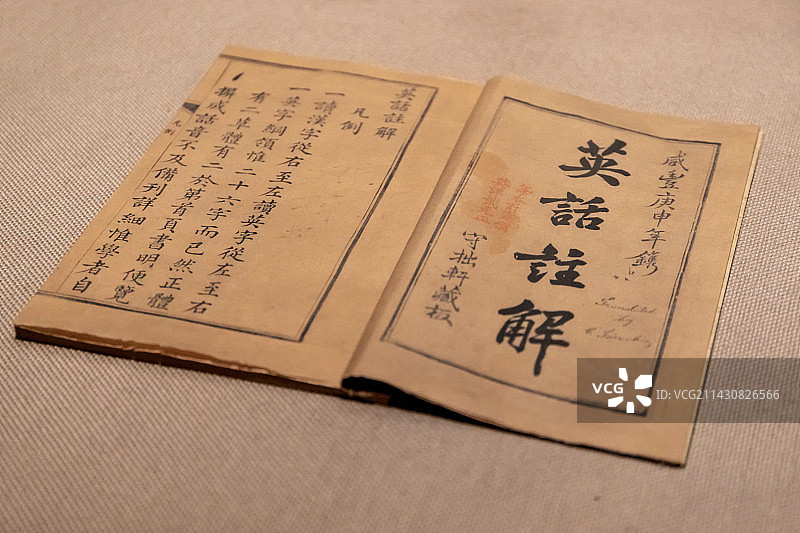 咸豐庚申年鐫
英話註解
守拙軒藏板
Translated
by
英話註解
凡例
一讀漢字從右至左讀英字從左至右
一英字綱領惟二十六字而已然正體
有二草體有二於第首頁書明便覽
撰成話音不及備刊詳細惟學者自
凡例
VCG
ID: VCG211430826566